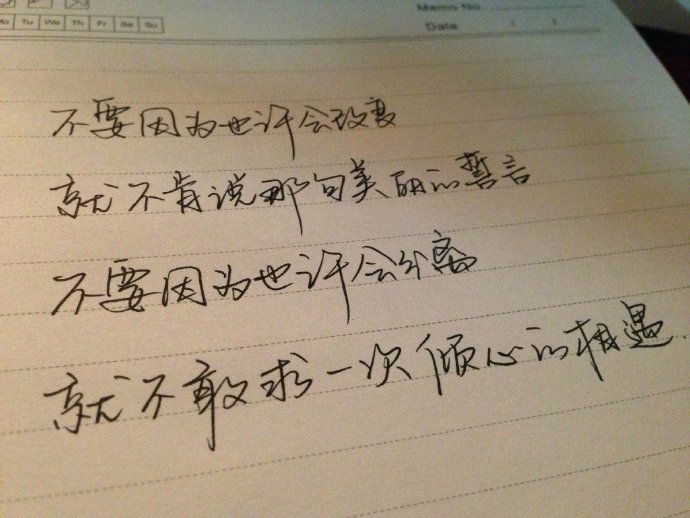 Memo No.
Mo Tu We Th Fr Sa Su
Date / /
不要因为也许会改变
就不肯说那句美丽的誓言
不要因为也许会分离
就不敢求一次倾心的相遇